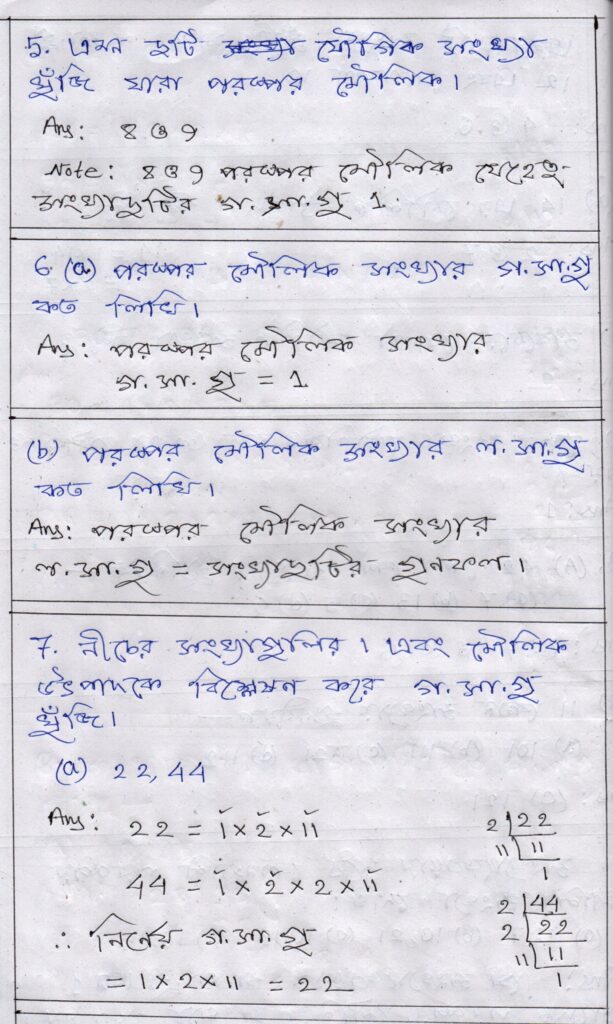 5. এমন দুটি যৌগিক সংখ্যা
খুঁজি যারা পরস্পর মৌলিক।
Ans: 8 ও 9
Note: 8 ও 9 পরস্পর মৌলিক যেহেতু
সংখ্যাদুটির গ.সা.গু 1.
6. (a) পরস্পর মৌলিক সংখ্যার গ.সা.গু
কত লিখি।
Ans: পরস্পর মৌলিক সংখ্যার
গ.সা.গু = 1
(b) পরস্পর মৌলিক সংখ্যার ল.সা.গু
কত লিখি।
Ans: পরস্পর মৌলিক সংখ্যার
ল.সা.গু = সংখ্যাদুটির গুনফল।
7. নীচের সংখ্যাগুলির । এবং মৌলিক
উৎপাদকে বিশ্লেষন করে গ.সা.গু
খুঁজি।
(a) 22, 44
Ans: 22 = 1 × 2 × 11
2 | 22
11 | 11
1
44 = 1 × 2 × 2 × 11
2 | 44
2 | 22
11 | 11
1
∴ নির্ণেয় গ.সা.গু
= 1 × 2 × 11 = 22